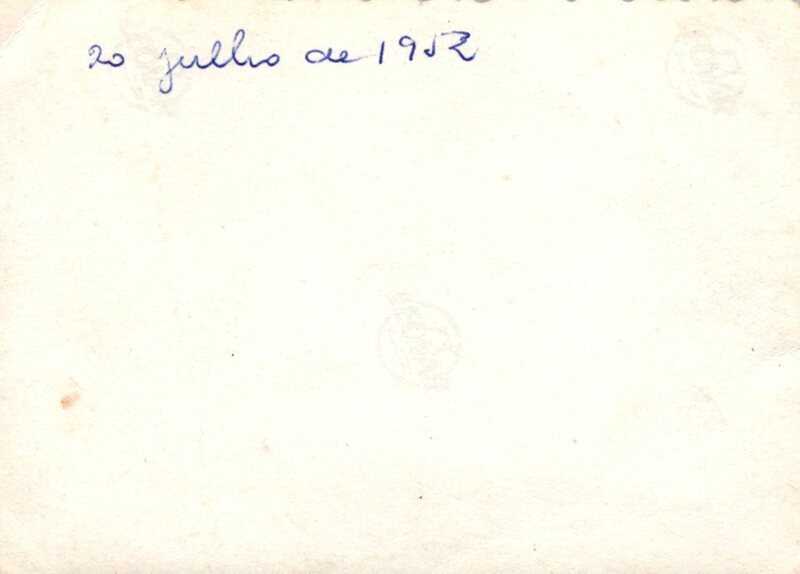 20 julho de 1952